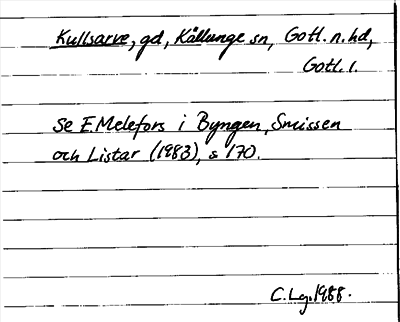 Kullsarve, gd, Källunge sn, Gotl. n. hd,
Gotl. l.
Se E. Melefors i Byngen, Smissen
och Listar (1983), s 170.
C. Lg. 1988.